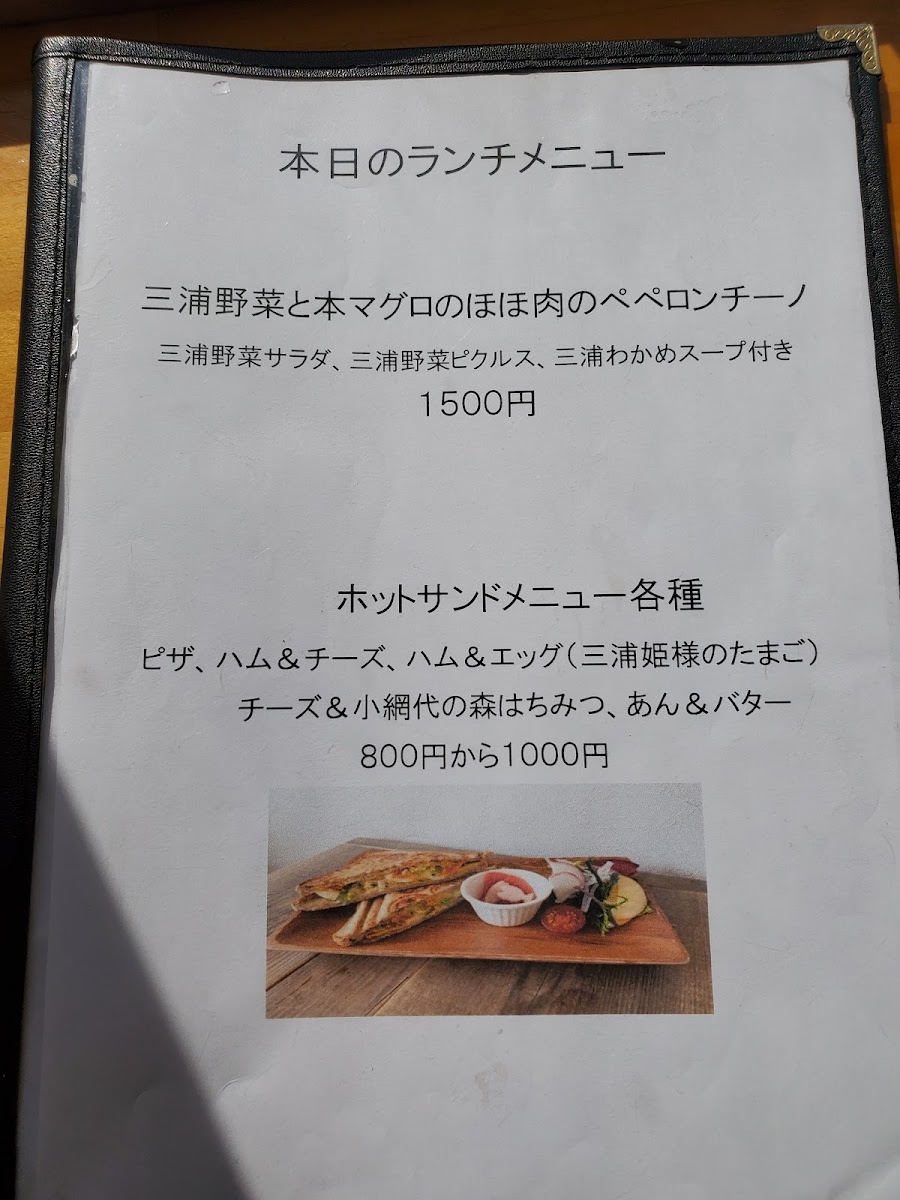 本日のランチメニュー
三浦野菜と本マグロのほほ肉のペペロンチーノ
三浦野菜サラダ、三浦野菜ピクルス、三浦わかめスープ付き
1500円
ホットサンドメニュー各種
ピザ、ハム＆チーズ、ハム＆エッグ（三浦姫様のたまご）
チーズ＆小網代の森はちみつ、あん＆バター
800円から1000円